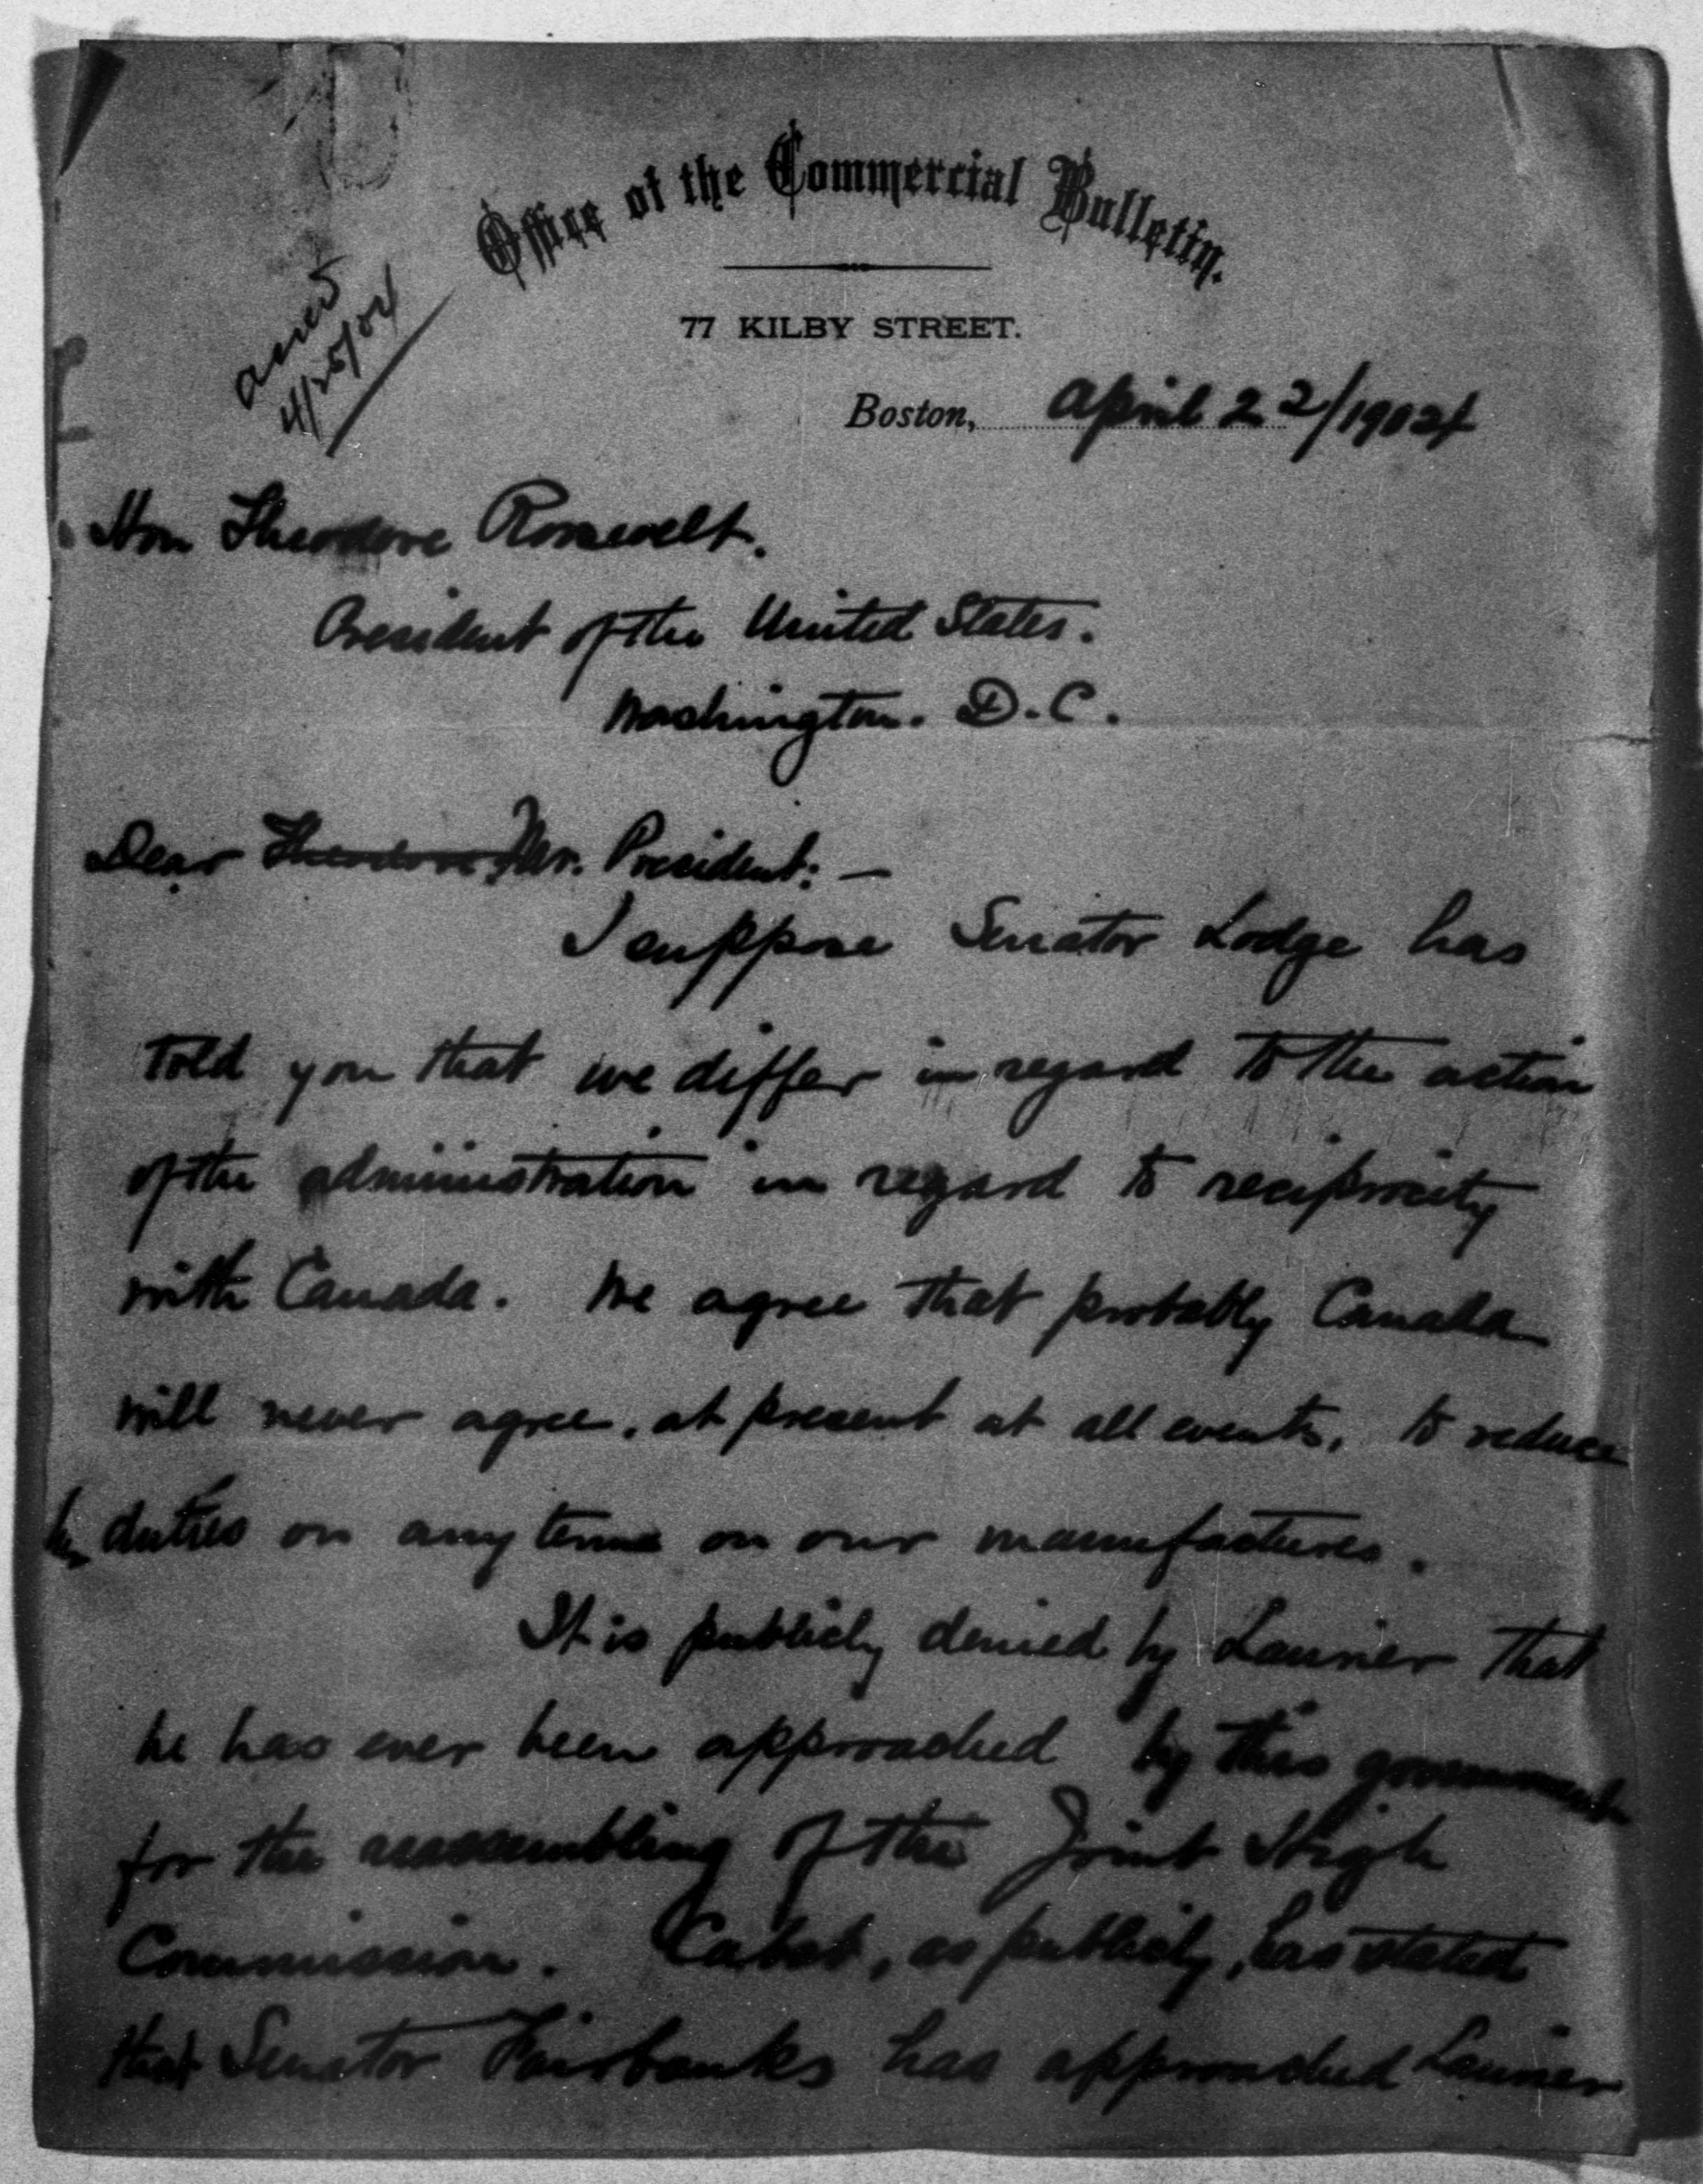 Office of the Commercial Bulletin.
77 KILBY STREET.
answd
4/25/04
Boston, April 22/1904
Hon Theodore Roosevelt.
President of the United States.
Washington. D.C.
Dear Theodore Mr. President: —
I suppose Senator Lodge has
told you that we differ in regard to the action
of the administration in regard to reciprocity
with Canada. We agree that probably Canada
will never agree, at present at all events, to reduce
her duties on any terms on our manufactures.
It is publicly denied by Laurier that
he has ever been approached by this government
for the reassembling of the Joint High
Commission. Cabot, as publicly, has stated
that Senator Fairbanks has approached Laurier